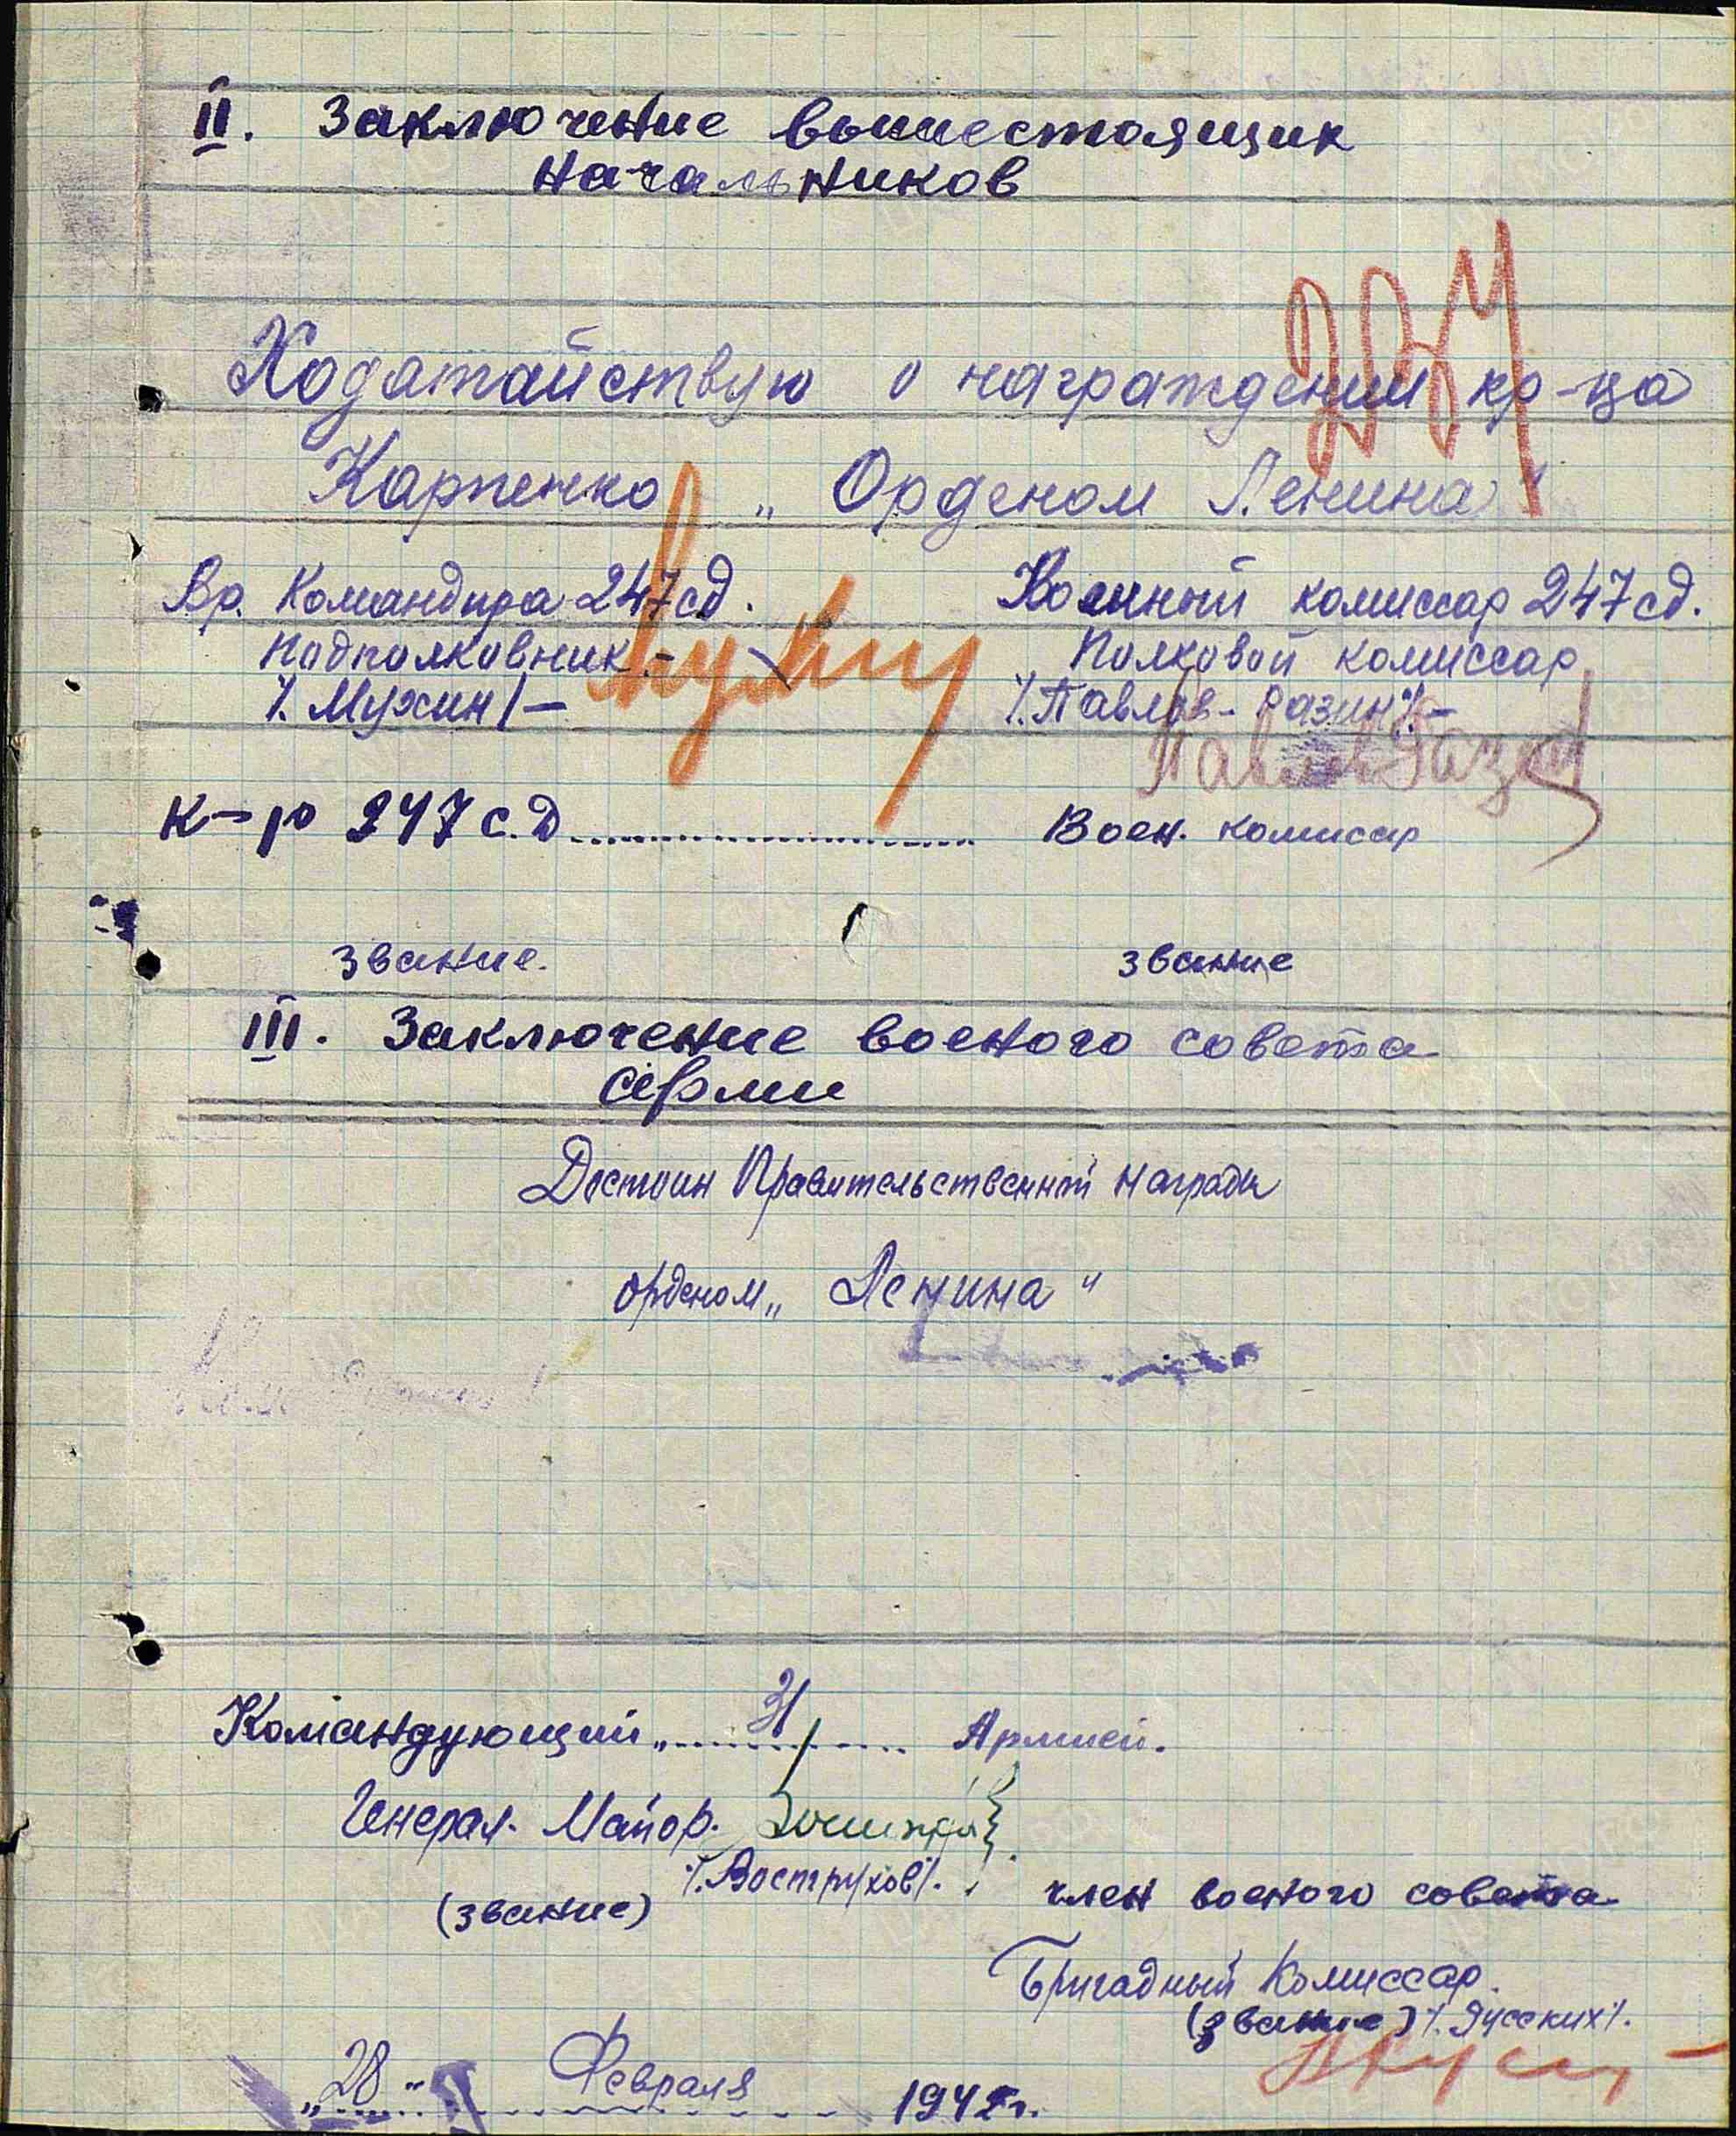 II. Заключение вышестоящих
начальников
Ходатайствую о награждении кр-ца
Карпенко „Орденом Ленина"
Вр. Командира 247 сд.
Подполковник -
/. Мухин / -
Военный комиссар 247 сд.
Полковой комиссар
/. Павлов - Разин /. -
Павлов Разин
К-р 247 с.д
Воен. комисар
звание.
звание
III. Заключение военого совета
арми
Достоин Правительственной Награды
орденом „Ленина"
Командующий „ 31 Армией.
Генерал. Майор.
/. Вострухов /.
(звание)
член военого совета
Бригадный Комиссар.
(звание) /. Русских /.
„28" Февраля 1942 г.